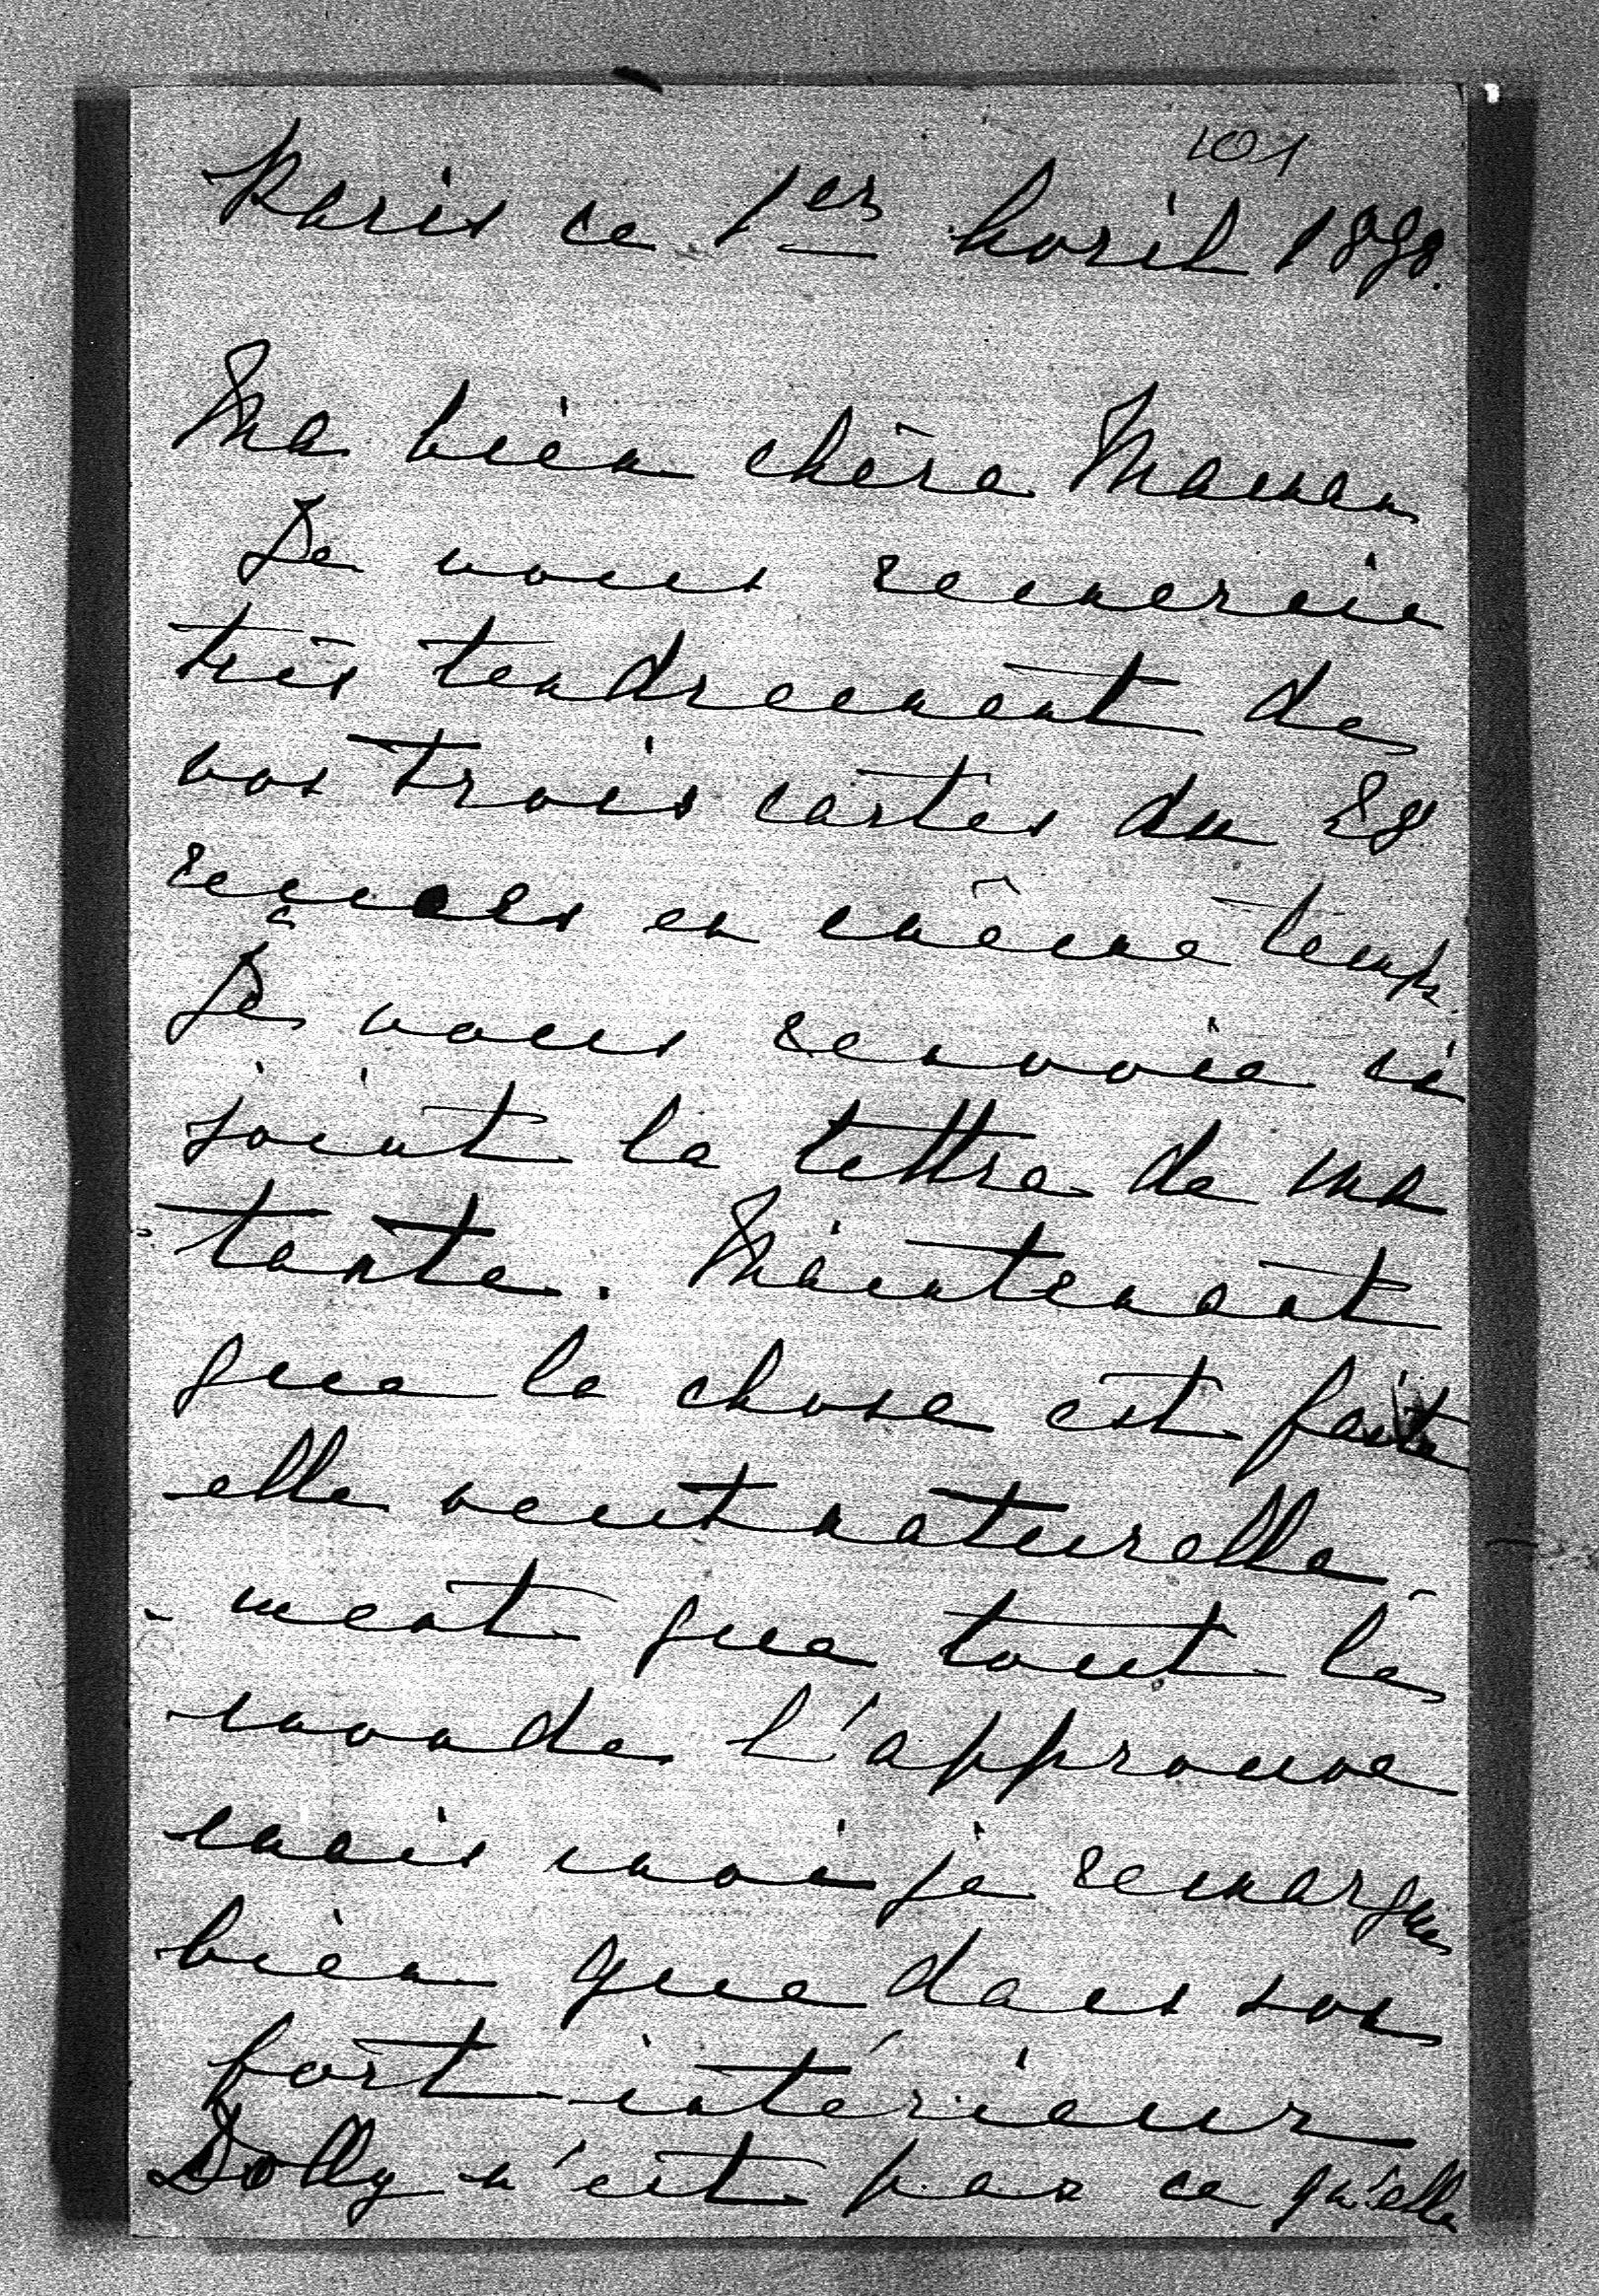 101
Paris ce 1er Avril 1898.
Ma bien chère Maman
Je vous remercie
très tendrement de
vos trois cartes du 28
reçues en même temps.
Je vous renvoie ci
joint la lettre de ma
tante. Maintenant
que la chose est faite
elle veut naturelle-
ment que tout le
monde l'approuve
mais moi je remarque
bien que dans son
fort intérieur
Dolly n'est pas ce qu'elle